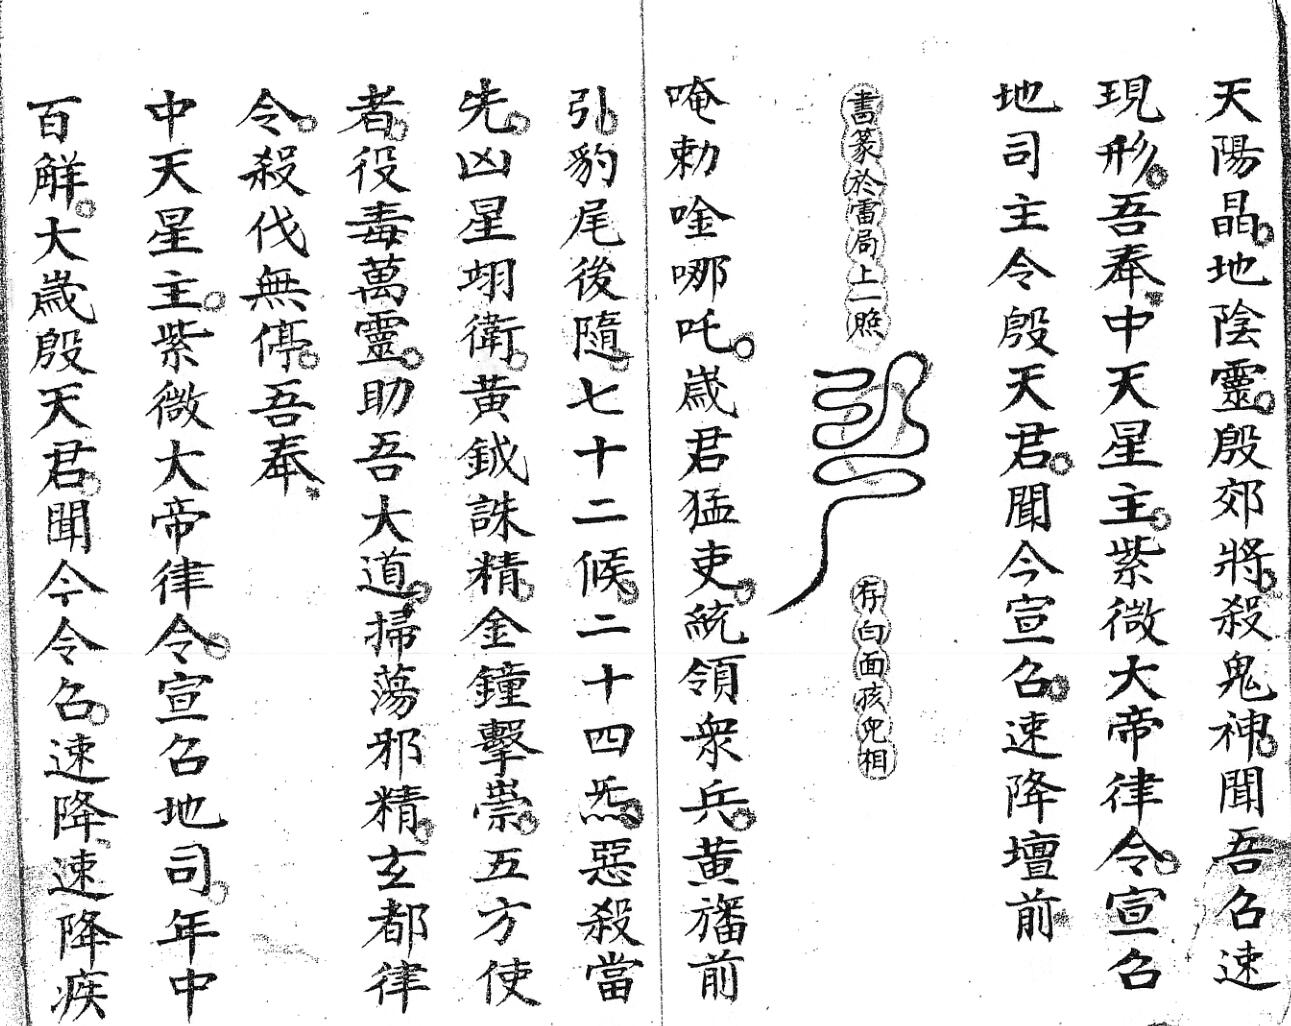 天陽晶地陰靈殷郊將殺鬼神聞吾召速
現形吾奉中天星主紫微大帝律令宣召
地司主令殷天君聞今宣召速降壇前
書篆於雷局上一照
存白面孩兒相
唵勅唫哪吒歲君猛吏統領衆兵黄旛前
引豹尾後隨七十二候二十四炁惡殺當
先凶星翊衛黄鉞誅精金鐘擊祟五方使
者役毒萬靈助吾大道掃蕩邪精玄都律
令殺伐無停吾奉
中天星主紫微大帝律令宣召地司年中
百解大歲殷天君聞今令召速降速降疾